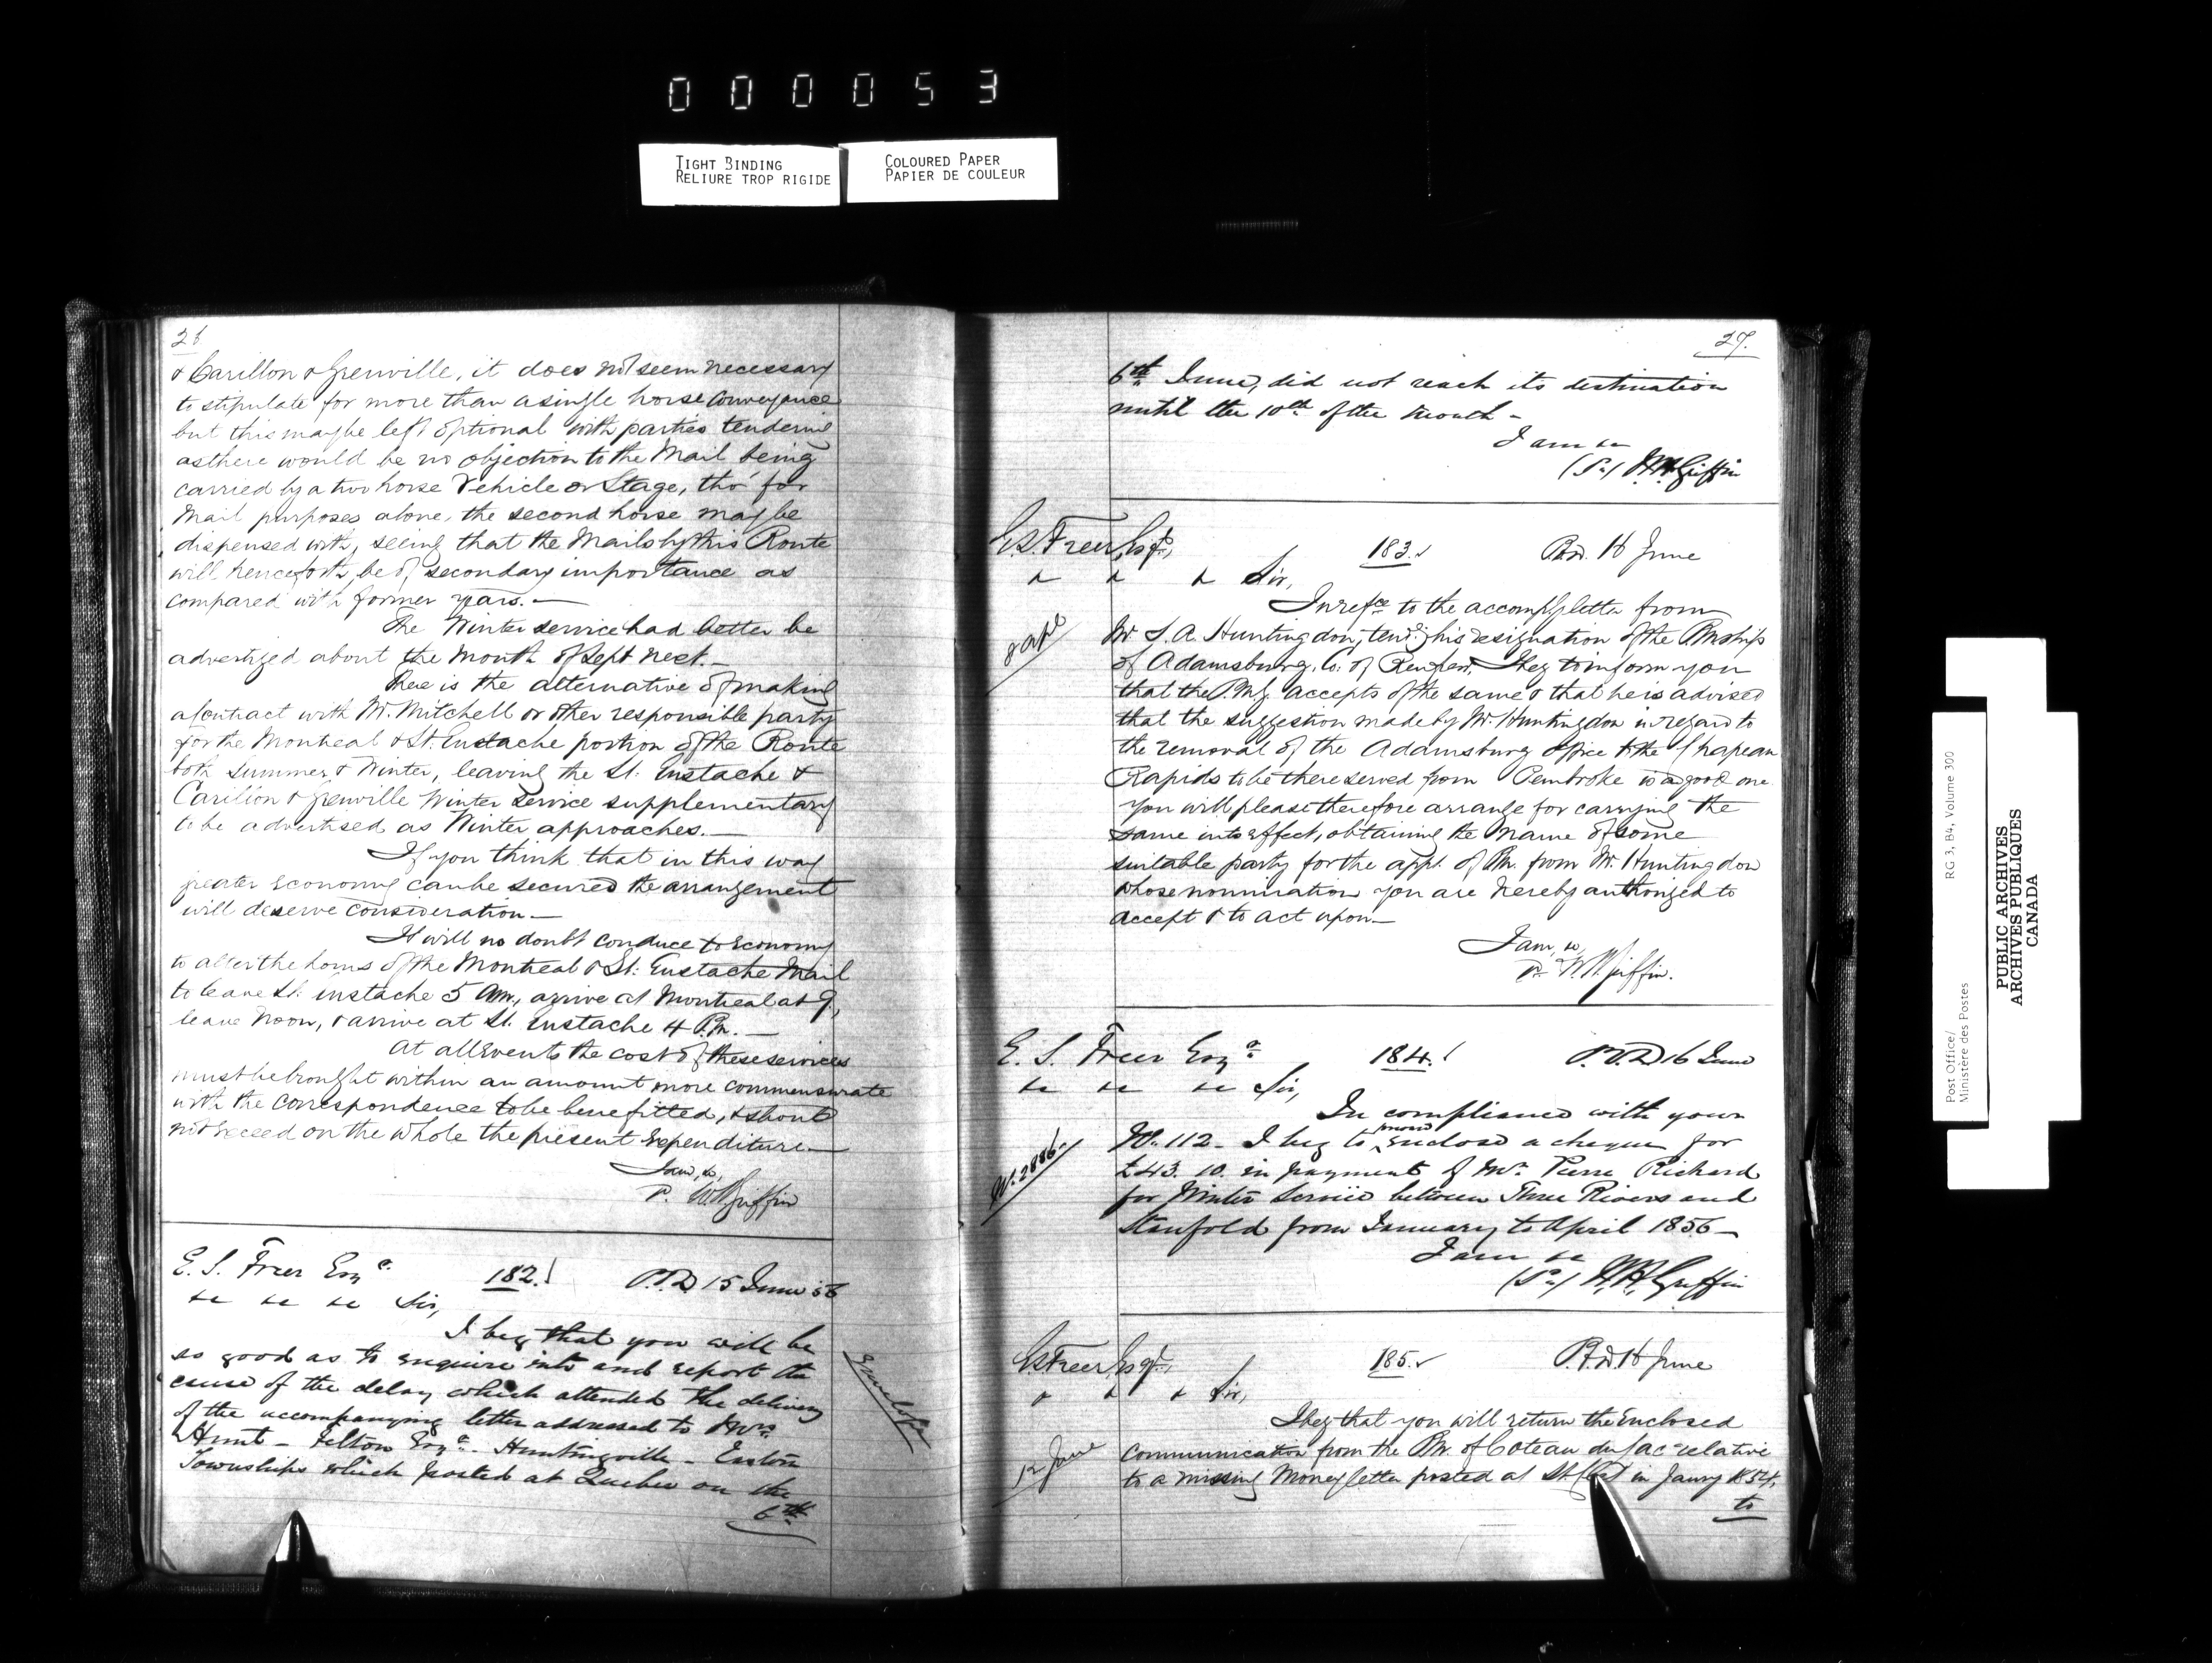 000053
TIGHT BINDING
RELIURE TROP RIGIDE
COLOURED PAPER
PAPIER DE COULEUR
26
& Carillon & Grenville, it does not seem necessary
to stipulate for more than a single horse conveyance
but this may be left optional with parties tendering
as there would be no objection to the Mail being
carried by a two horse Vehicle or Stage, tho' for
Mail purposes alone, the second horse may be
dispensed with, seeing that the Mails by this Route
will henceforth, be of secondary importance as
compared with former years.—
The Winter service had better be
advertized about the month of Sept next.—
There is the alternative of making
a Contract with Mr. Mitchell or other responsible party
for the Montreal & St. Eustache portion of the Route
both Summer & Winter, leaving the St. Eustache &
Carillon & Grenville Winter Service supplementary
to be advertised as Winter approaches.—
If you think that in this way
greater economy can be secured the arrangement
will deserve consideration—
It will no doubt conduce to economy
to alter the hours of the Montreal & St. Eustache Mail
to leave St. Eustache 5 am, arrive at Montreal at 9,
leave Noon, & arrive at St. Eustache 4 P.m.—
At all Events the cost of these services
must be brought within an amount more commensurate
with the correspondence to be benefitted, & should
not exceed on the whole the present Expenditure—
I am, &c,
W H Griffin
E. S. Freer Esqe. 182. P.O.D 15 June 56
" " " Sir,
I beg that you will be
so good as to enquire into and report the
cause of the delay which attended the delivery
of the accompanying letter addressed to Mrs
Hunt - Felton Esqe. Huntingville - Eastn
Townships which posted at Quebec on the
6th
Envelope
27.
6th June, did not reach its destination
until the 10th of the month -
I am &c
W. H. Griffin
E.S. Freer, Esqr, 183. P.O.D. 16 June
" " " Sir,
In refce to the accompg letter from
Mr S. A. Huntingdon, tendg his resignation of the Pmship
of Adamsburg, Co. of Renfrew, I beg to inform you
that the P.M.G. accepts of the same & that he is advised
that the suggestion made by Mr. Huntingdon in regard to
the removal of the Adamsburg Office to the Chapeau
Rapids to be there served from Pembroke is a good one
You will please therefore arrange for carrying the
same into effect, obtaining the name of some
suitable party for the appt. of Pm. from Mr. Huntingdon
whose nomination you are hereby authorized to
accept & to act upon—
8 Apl
I am, &c,
W H Griffin.
E. S. Freer Esqe 184. P.O.D 16 June
" " " Sir,
In compliance with your
No. 112 - I beg to enclose a cheque for
£43. 10. in payment of Mr. Pierre Richard
for Winter Service between Three Rivers and
Stanfold from January to April 1856—
W. 2886
I am &c
W. H. Griffin
E.S. Freer, Esqr, 185. P.O.D. 16 June
" " " Sir,
I beg that you will return the Enclosed
Communication from the Pm. of Coteau du Lac relative
to a missing Money letter posted at St. in Janry 1854,
to
12 June
Post Office/
Ministère des Postes
RG 3, B4, Volume 300
PUBLIC ARCHIVES
ARCHIVES PUBLIQUES
CANADA